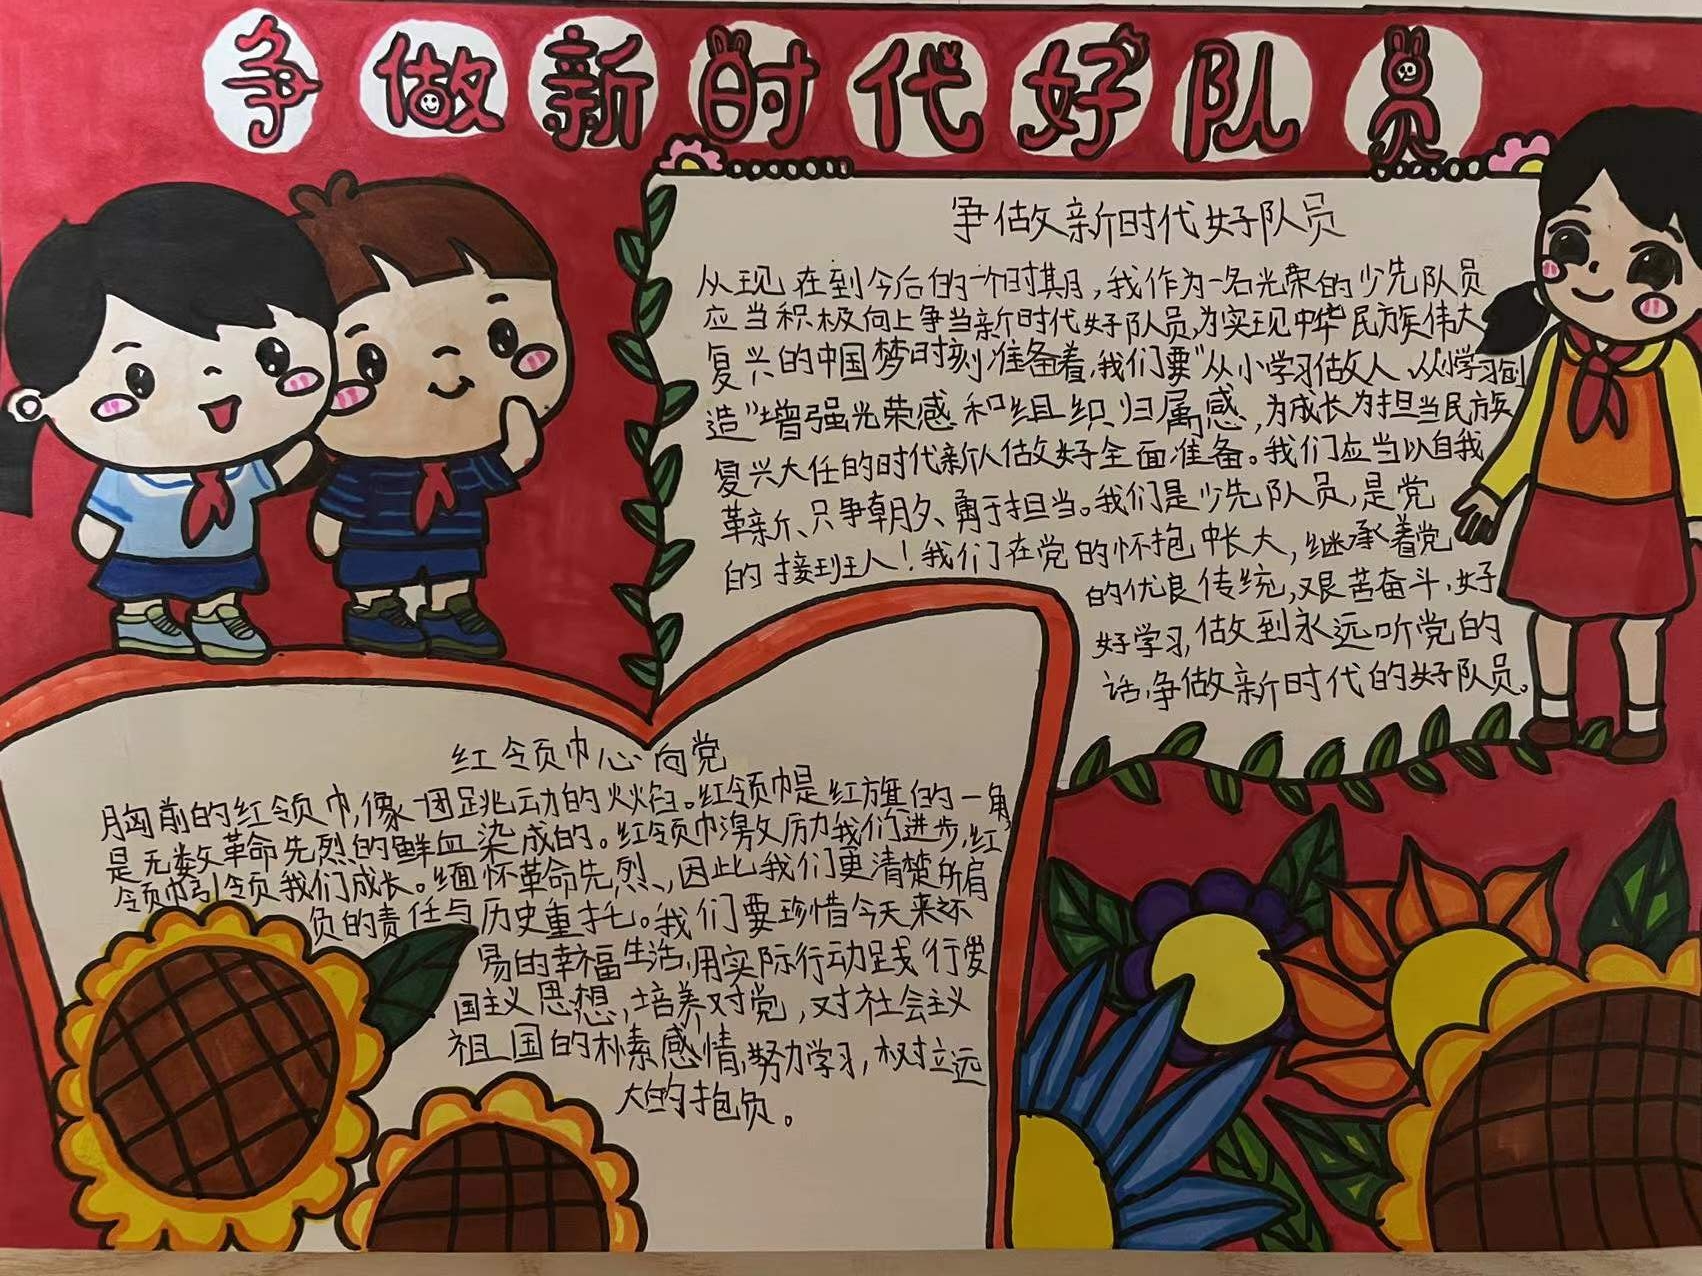 争做新时代好队员
争做新时代好队员
从现在到今后的一个时期，我作为一名光荣的少先队员
应当积极向上争当新时代好队员，为实现中华民族伟大
复兴的中国梦时刻准备着，我们要“从小学习做人、从小学习创
造”增强光荣感和组织归属感，为成长为担当民族
复兴大任的时代新人做好全面准备。我们应当以自我
革新、只争朝夕、勇于担当。我们是少先队员，是党
的接班人！我们在党的怀抱中长大，继承着党
的优良传统，艰苦奋斗，好
好学习，做到永远听党的
话，争做新时代的好队员。
红领巾心向党
胸前的红领巾，像一团跳动的火焰。红领巾是红旗的一角，
是无数革命先烈的鲜血染成的。红领巾激励我们进步，红
领巾引领我们成长。缅怀革命先烈、，因此我们更清楚所肩
负的责任与历史重托。我们要珍惜今天来之不
易的幸福生活，用实际行动践行爱
国主义思想，培养对党，对社会主义
祖国的朴素感情，努力学习，树立远
大的抱负。